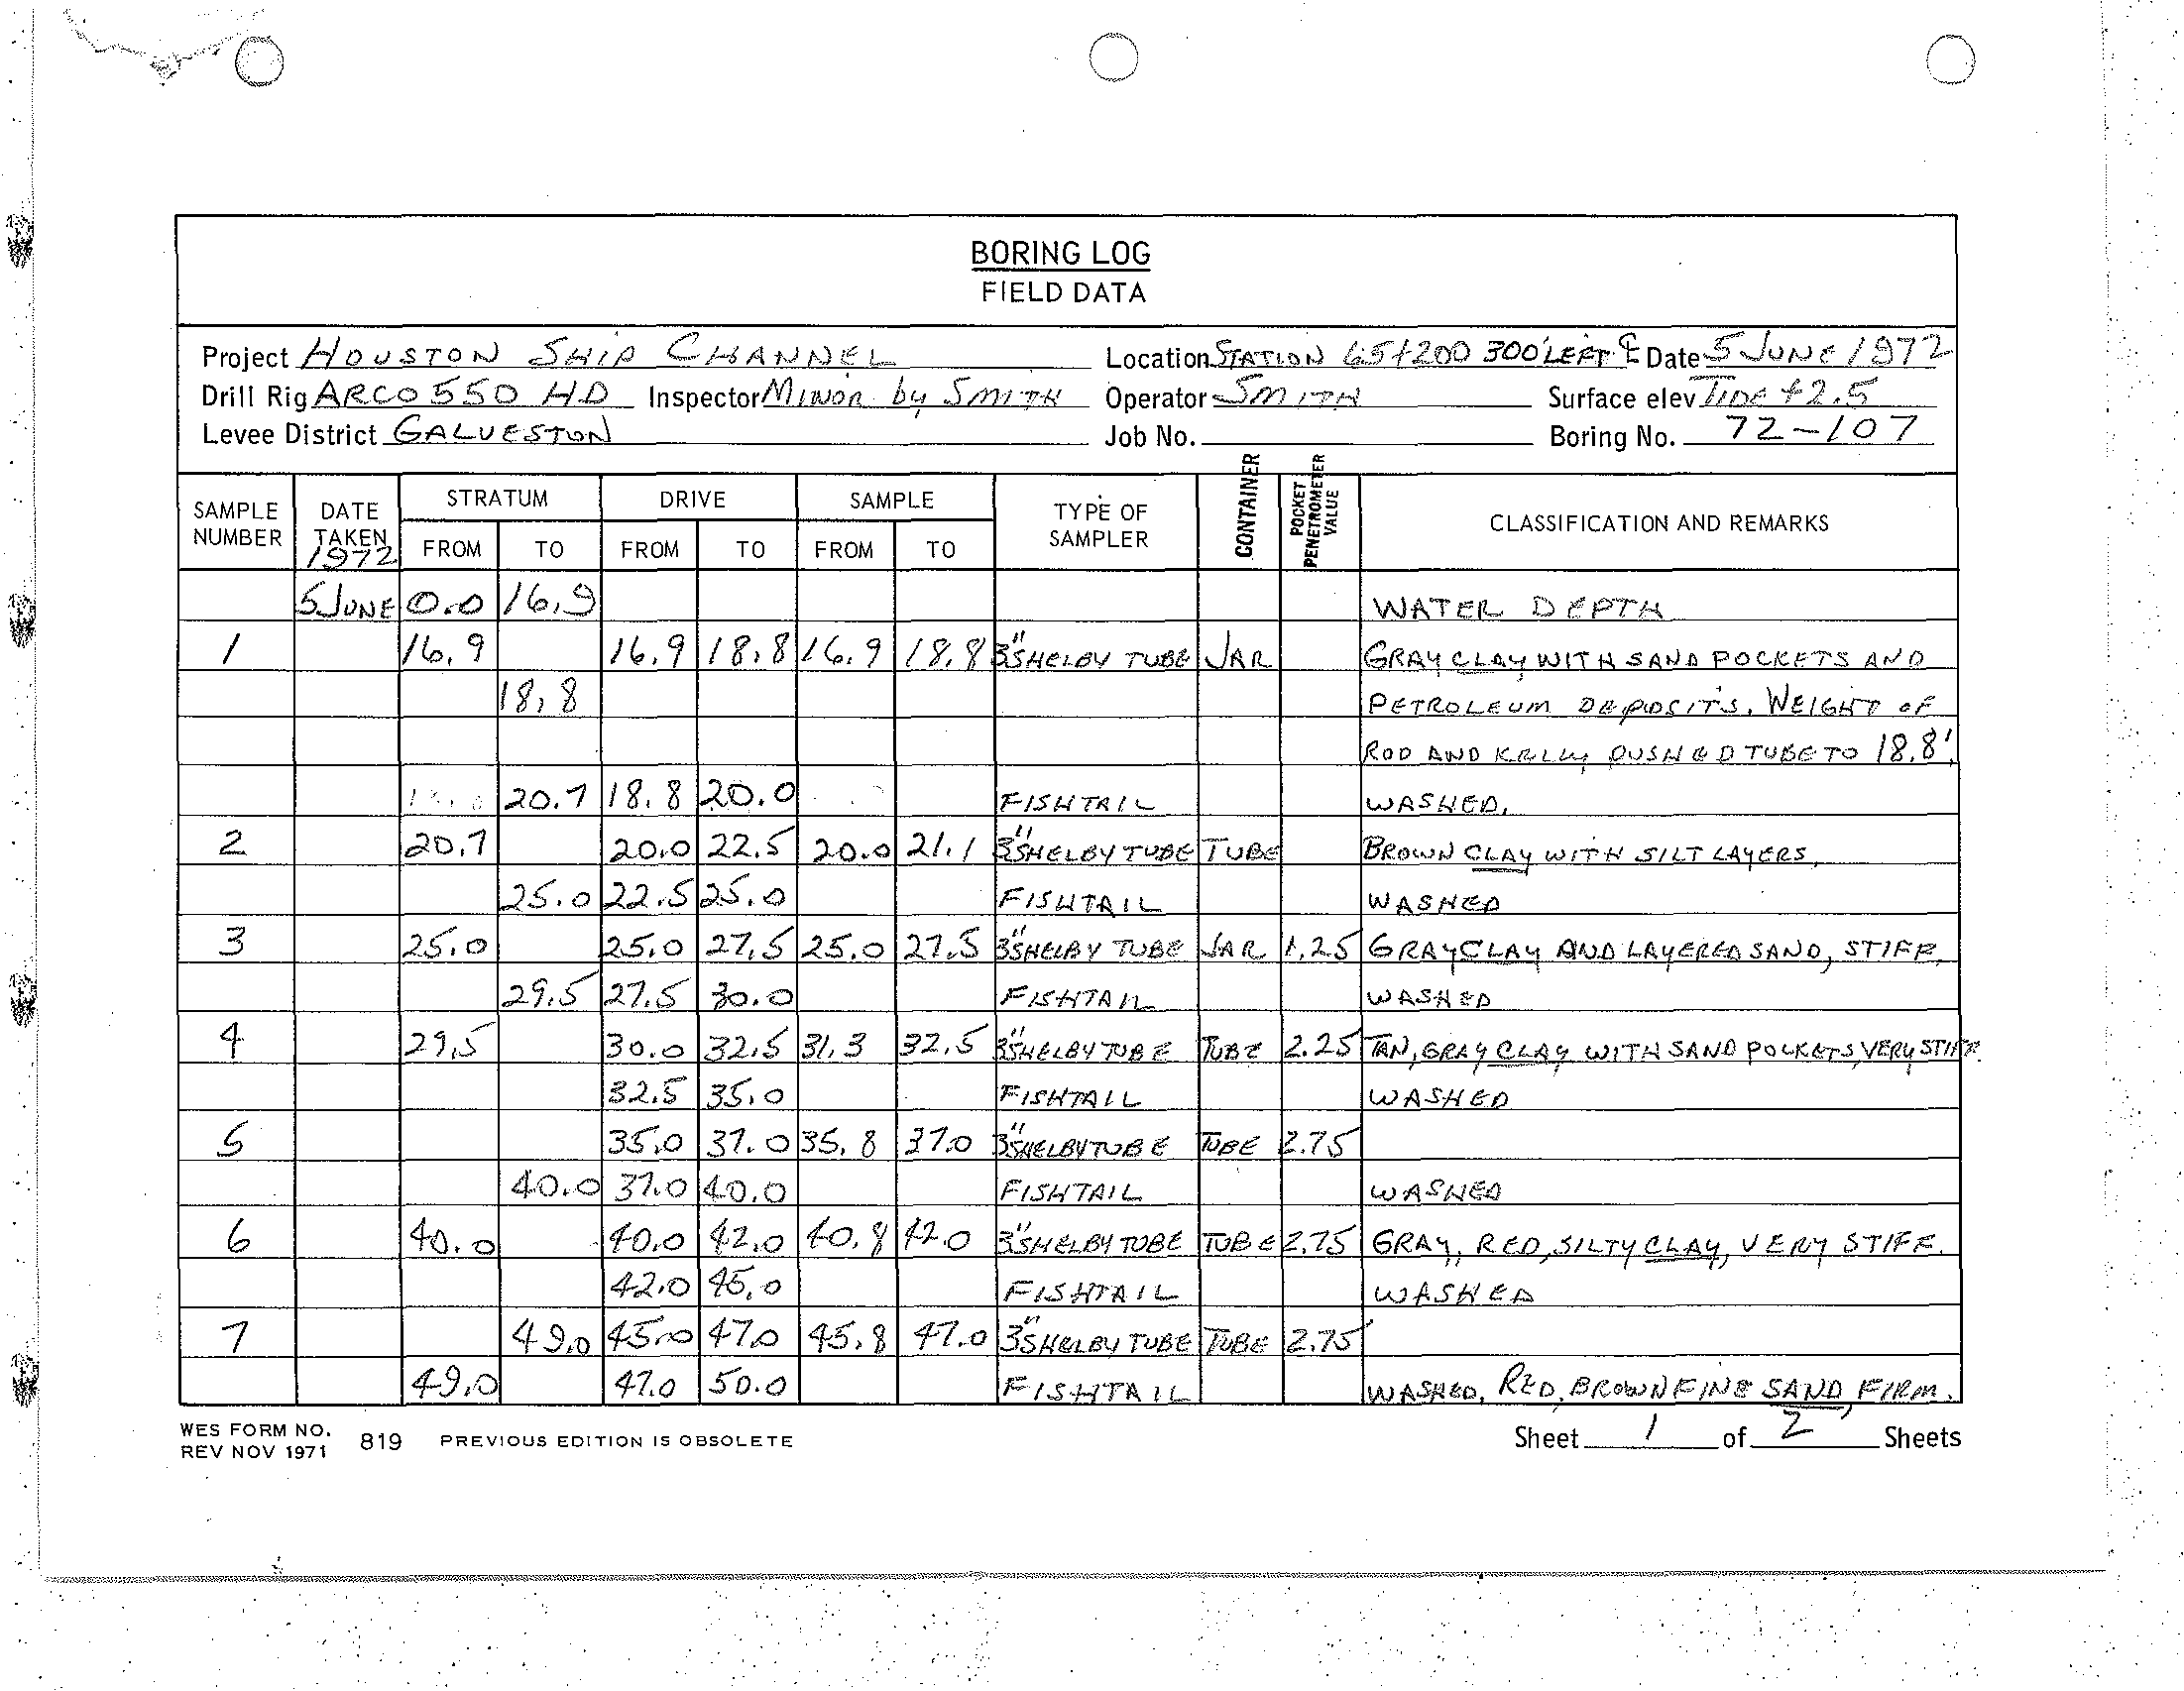 BORING LOG
FIELD DATA
Project HOUSTON SHIP CHANNEL Location STATION 65+200 300' LEFT ℄ Date 5 JUNE 1972
Drill Rig ARCO 550 HD Inspector MINOR by SMITH Operator SMITH Surface elev TIDE +2.5
Levee District GALVESTON Job No. Boring No. 72-107
SAMPLE NUMBER DATE TAKEN 1972 STRATUM FROM TO DRIVE FROM TO SAMPLE FROM TO TYPE OF SAMPLER CONTAINER POCKET PENETROMETER VALUE CLASSIFICATION AND REMARKS
5 JUNE 0.0 16.9 WATER DEPTH
1 16.9 16.9 18.8 16.9 18.8 3" SHELBY TUBE JAR GRAY CLAY WITH SAND POCKETS AND
18.8 PETROLEUM DEPOSITS. WEIGHT OF
ROD AND KELLY PUSHED TUBE TO 18.8'.
20.7 18.8 20.0 FISHTAIL WASHED.
2 20.7 20.0 22.5 20.0 21.1 3" SHELBY TUBE TUBE BROWN CLAY WITH SILT LAYERS.
25.0 22.5 25.0 FISHTAIL WASHED
3 25.0 25.0 27.5 25.0 27.5 3" SHELBY TUBE JAR 1.25 GRAY CLAY AND LAYERED SAND, STIFF.
29.5 27.5 30.0 FISHTAIL WASHED
4 29.5 30.0 32.5 31.3 32.5 3" SHELBY TUBE TUBE 2.25 TAN, GRAY CLAY WITH SAND POCKETS, VERY STIFF.
32.5 35.0 FISHTAIL WASHED
5 35.0 37.0 35.8 37.0 3" SHELBY TUBE TUBE 2.75
40.0 37.0 40.0 FISHTAIL WASHED
6 40.0 40.0 42.0 40.8 42.0 3" SHELBY TUBE TUBE 2.75 GRAY, RED, SILTY CLAY, VERY STIFF.
42.0 45.0 FISHTAIL WASHED
7 49.0 45.0 47.0 45.8 47.0 3" SHELBY TUBE TUBE 2.75
49.0 47.0 50.0 FISHTAIL WASHED. RED, BROWN FINE SAND, FIRM.
WES FORM NO. 819 PREVIOUS EDITION IS OBSOLETE Sheet 1 of 2 Sheets
REV NOV 1971